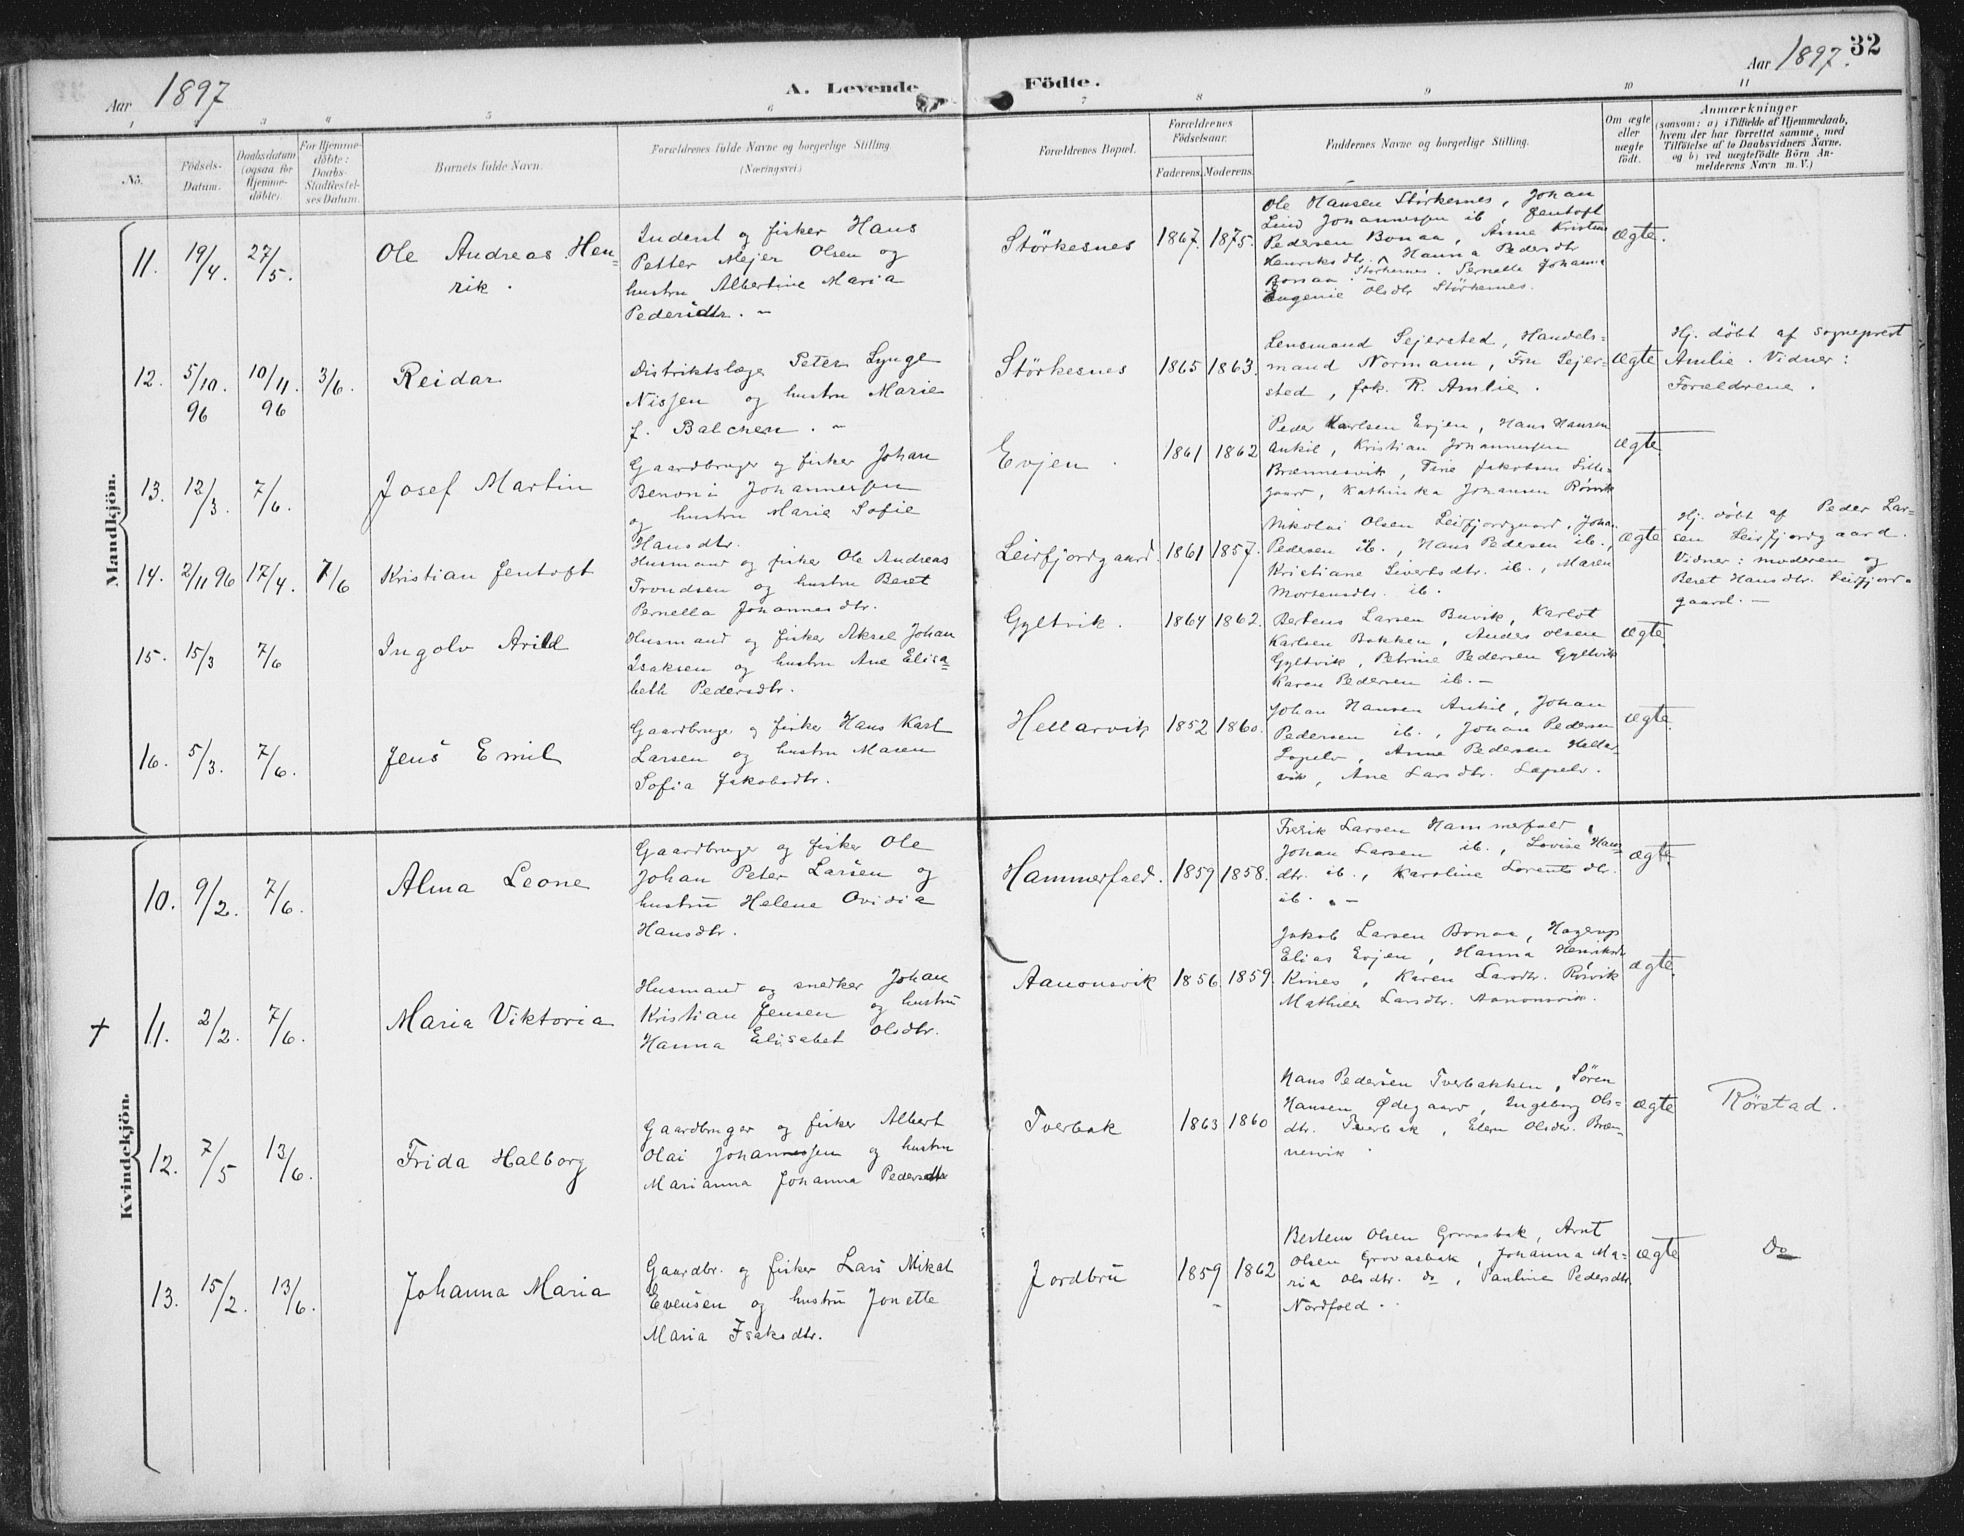 Aar 1897
A. Levende
Födte.
Aar 1897.
32
1
3
4
5
6
7
8
9
10
11
No.
Födsels-
Datum.
Daabsdatum
(ogsaa for
Hjemme-
döbte).
For Hjemme-
döbte:
Daabs-
Stadfæstel-
ses Datum.
Barnets fulde Navn.
Forældrenes fulde Navne og borgerlige Stilling.
(Næringsvei.)
Forældrenes Bopæl.
Forældrenes
Födselsaar.
Faderens.
Moderens.
Faddernes Navne og borgerlige Stilling.
Om ægte
eller
uægte
födt.
Anmærkninger
(saasom: a) i Tilfælde af Hjemmedaab,
hvem der har forrettet samme, med
Tilföielse af to Daabsvidners Navne.
og b) ved uægtefödte Börn An-
melderens Navn m. V.)
Mandkjön.
11. 19/4. 27/5.
Ole Andreas Hen-
rik.
Inderst og fisker Hans
Petter Mejer Olsen og
hustru Albertine Maria
Pedersdtr. -
Störkesnes 1867. 1875.
Ole Hansen Störkesnes, Johan
Lind Johannessen ib, Jentoft
Pedersen Bonaa, Anne Kristine
Henriksdtr. Hanna Pedersdtr
Bonaa. Störkesnes. Pernelle Johanna
Eugenie Olsdtr Störkesnes.
ægte.
12. 5/10. 96 10/11. 96 3/6.
Reidar
Distriktslæge Peter Lynge
Nissen og hustru Marie
f. Balchen. -
Störkesnes 1865 1863.
Lensmand Sejersted, Handels-
mand Normann, Fru Sejer-
sted, frk. R. Amlie.
ægte
Hj. döbt af sogneprest
Amlie. Vidner:
Forældrene.
13. 12/3. 7/6.
Josef Martin
Gaardbruger og fisker Johan
Benoni Johannessen
og hustru Marie Sofie
Hansdtr.
Evjen. 1861 1862
Peder Karlsen Evjen, Hans Hansen
Ankil, Kristian Johannessen
Brænnesvik, Tine Jakobsen Lille-
gaard, Kathinka Johansen Rösvik
ægte
14. 2/11 96 17/4. 7/6
Kristian Jentoft
Husmand og fisker Ole Andreas
Trondsen og hustru Beret
Pernella Johannesdtr.
Leirfjordgaard. 1861 1857.
Nikolai Olsen Leirfjordgaard, Johan
Pedersen ib., Hans Pedersen ib.,
Kristiane Sivertsdtr. ib., Maren
Mortensdtr. ib.
ægte
Hj. döbt af Peder Lar-
sen Leirfjordgaard.
Vidner: moderen og
Beret Hansdtr. Leirfjord-
gaard. -
15. 15/3 7/6
Ingolv Arild
Husmand og fisker Aksel Johan
Isaksen og hustru Ane Elisa-
beth Pedersdtr.
Gyltvik. 1864 1862.
Bertens Larsen Buvik, Karlot
Karlsen Bakken, Andes Olsen
Gyltvik, Petrine Pedersen Gyltvik
Karen Pedersen ib. -
ægte.
16. 5/3. 7/6.
Jens Emil
Gaardbruger og fisker Hans Karl
Larsen og hustru Maren
Sofia Jakobsdtr.
Hellarvik 1852 1860.
Johan Hansen Ankil, Johan
Pedersen ib., Johan Pedersen
Lapelv, Anne Pedersen Hellar-
vik, Ane Larsdtr. Lapelv.
ægte.
Kvindekjön.
10. 9/2. 7/6.
Alma Leone
Gaardbruger og fisker Ole
Johan Peter Larsen og
hustru Helene Ovidia
Hansdtr.
Hammerfald. 1859 1858.
Fredrik Larsen Hammerfald,
Johan Larsen ib., Lovise Hans-
dtr. ib., Karoline Lorentsdtr.
ib. -
ægte.
† 11. 2/2. 7/6.
Maria Viktoria
Husmand og snedker Johan
Kristian Jensen og hustru
Hanna Elisabet Olsdtr.
Aanonsvik 1856 1859.
Jakob Larsen Bonaa, Hagerup
Elias Evjen, Hanna Henriksdtr
Kines, Karen Larsdtr. Rösvik
Mathilde Larsdtr. Aanonsvik.
ægte.
12. 7/5 13/6.
Frida Halborg
Gaardbruger og fisker Albert
Olai Johannessen og hustru
Marianna Johanna Pedersdtr
Tverbak 1863 1860
Hans Pedersen Tverbakken, Sören
Hansen Ødegaard, Ingeborg Ols-
dtr. Tverbak, Elen Olsdtr. Bræn-
nesvik.
ægte
Rörstad.
13. 15/2. 13/6.
Johanna Maria
Gaardbr. og fisker Lars Mikal
Evensen og hustru Jonette
Maria Isaksdtr.
Jordbru 1859 1862
Bertem Olsen Grovasbak, Arnt
Olsen Grovasbak, Johanna Ma-
ria Olsdtr. do, Pauline Pedersdtr.
Nordfold.
ægte
Do